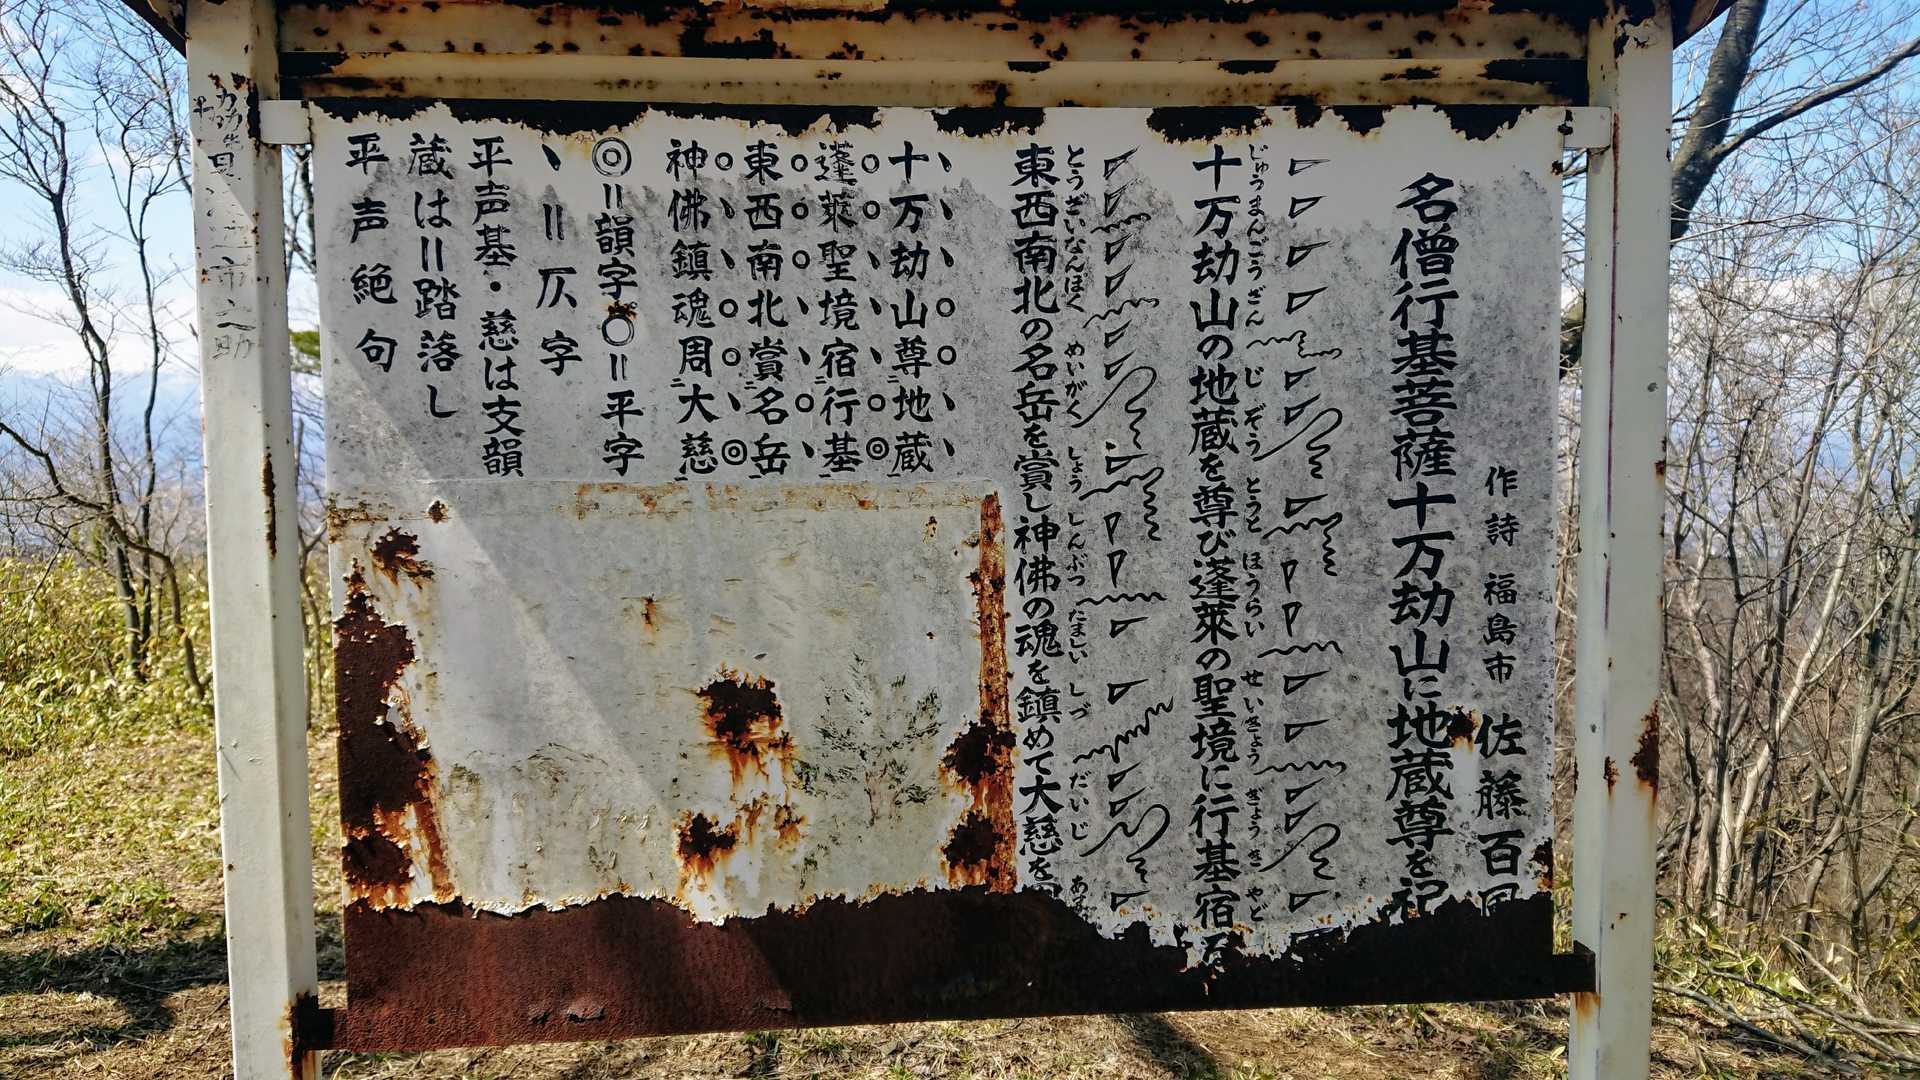 名僧行基菩薩十万劫山に地蔵尊を祀
作詩 福島市 佐藤百風
じゅうまんごうざん じぞう とうと ほうらい せいきょう ぎょうき やど
十万劫山の地蔵を尊び蓬萊の聖境に行基宿
とうざいなんぼく めいがく しょう しんぶつ たましい しづ だいじ
東西南北の名岳を賞し神佛の魂を鎮めて大慈を
十万劫山尊地蔵
蓬萊聖境宿行基
東西南北賞名岳
神佛鎮魂周大慈
◎=韻字 ○=平字
丶=仄字
平声基・慈は支韻
蔵は=踏落し
平声絶句